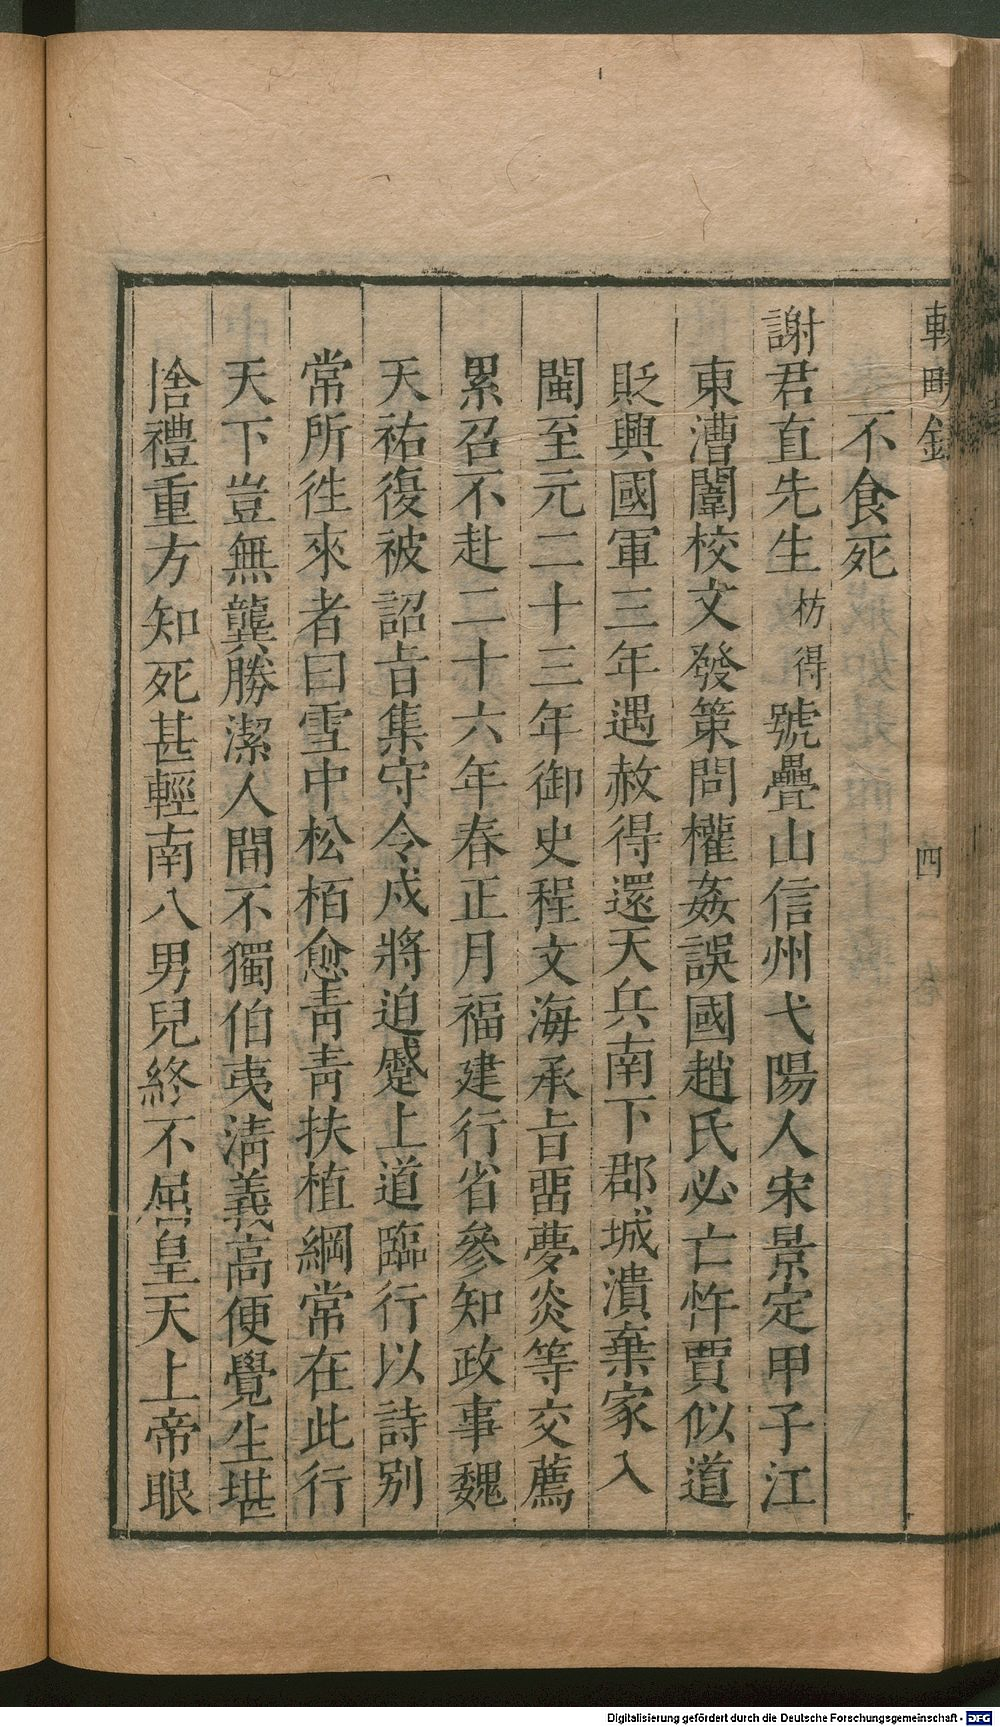 輟畊錄
四
不食死
謝君直先生枋得號疊山信州弋陽人宋景定甲子江
東漕闈校文發策問權姦誤國趙氏必亡忤賈似道
貶興國軍三年遇赦得還天兵南下郡城潰棄家入
閩至元二十三年御史程文海承旨畱夢炎等交薦
累召不赴二十六年春正月福建行省參知政事魏
天祐復被詔旨集守令戍將迫蹙上道臨行以詩別
常所徃來者曰雪中松栢愈靑靑扶植綱常在此行
天下豈無龔勝潔人間不獨伯夷淸義高便覺生堪
捨禮重方知死甚輕南八男兒終不屈皇天上帝眼
Digitalisierung gefördert durch die Deutsche Forschungsgemeinschaft - DFG